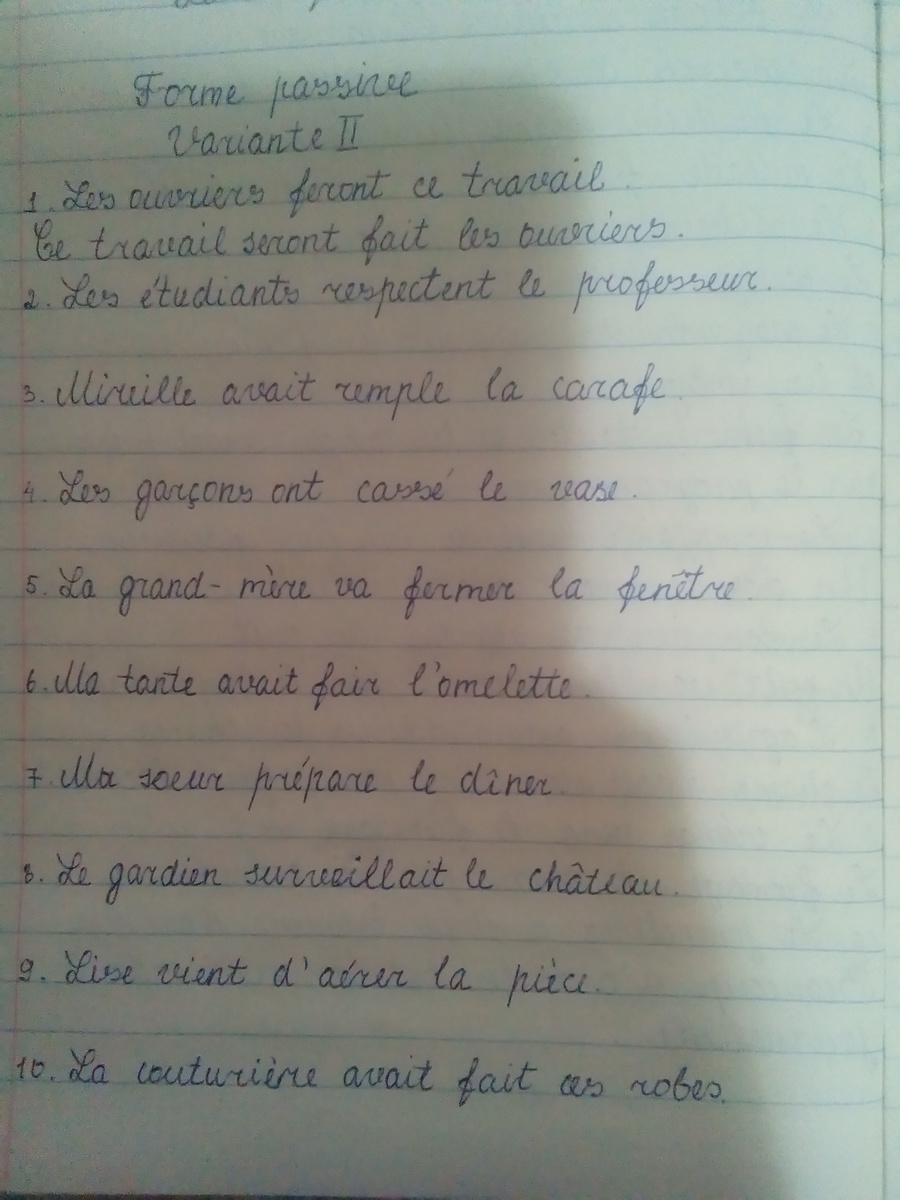 Forme passive
Variante II
1. Les ouvriers feront ce travail.
Ce travail seront fait les ouvriers.
2. Les étudiants respectent le professeur.
3. Mireille avait remple la carafe.
4. Les garçons ont cassé le vase.
5. La grand-mère va fermer la fenêtre.
6. Ma tante avait fair l'omelette.
7. Ma soeur prépare le dîner.
8. Le gardien surveillait le château.
9. Lise vient d'aérer la pièce.
10. La couturière avait fait ces robes.